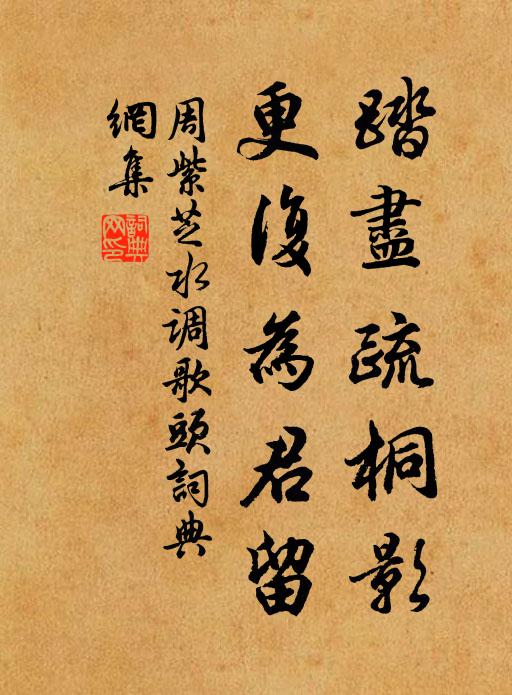 踏盡疏桐影
更復為君留
周紫芝水调歌頭詞典
網集
詞典
网印